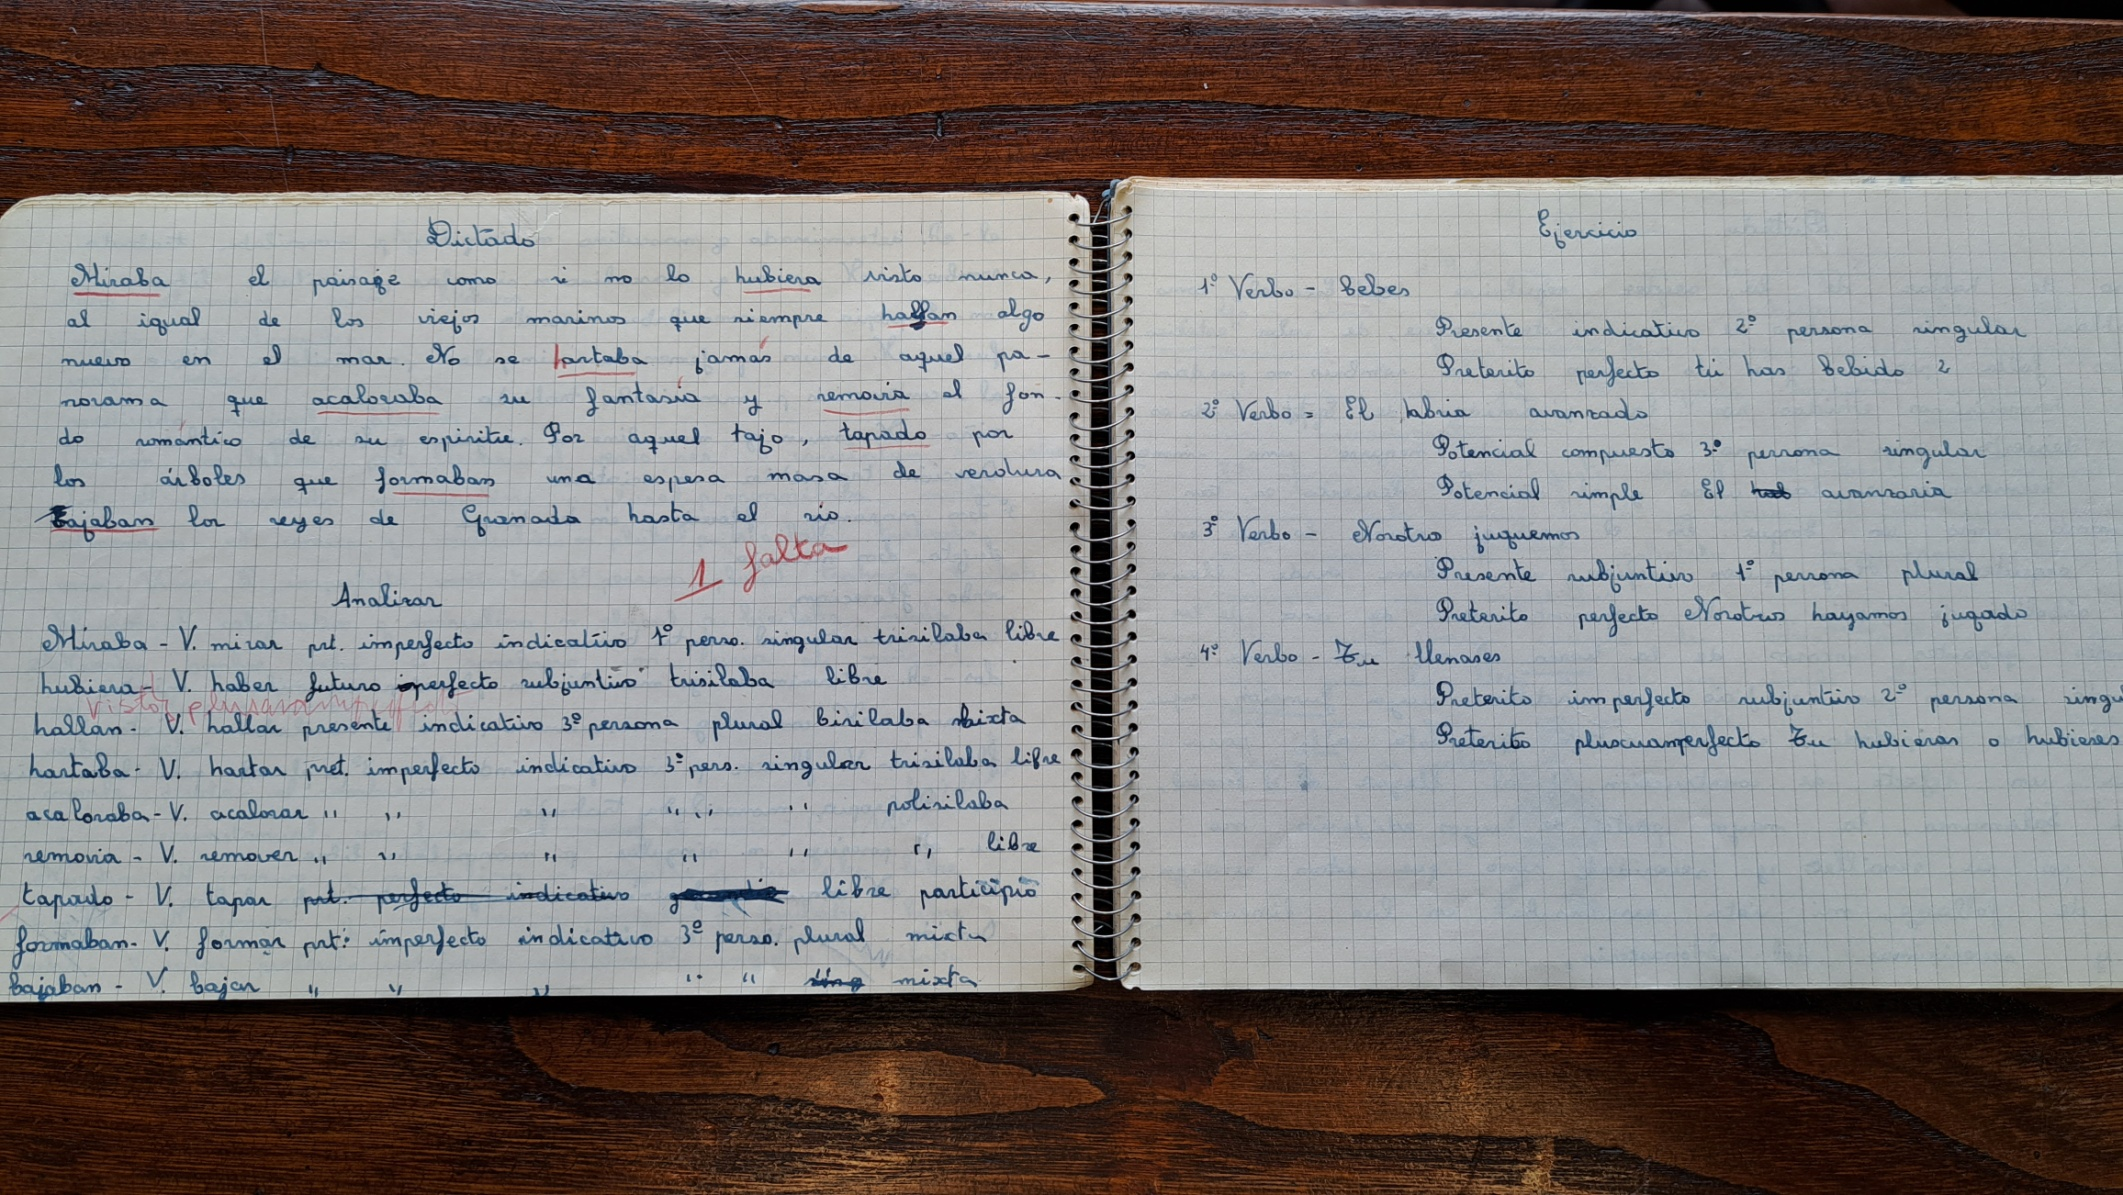 Dictado
Miraba el paisaje como si no lo hubiera visto nunca,
al igual de los viejos marinos que siempre hallan algo
nuevo en el mar. No se hartaba jamás de aquel pa-
norama que acaloraba su fantasía y removia el fon-
do romántico de su espiritu. Por aquel tajo, tapado por
los árboles que formaban una espesa masa de verdura
bajaban los reyes de Granada hasta el río.
1 falta
Analizar
Miraba - V. mirar prt. imperfecto indicativo 1º perso. singular trisilaba libre
hubiera - V. haber futuro perfecto subjuntivo trisilaba libre
visto
hallan - V. hallar presente indicativo 3º persona plural bisilaba mixta
hartaba - V. hartar pret. imperfecto indicativo 3º pers. singular trisilaba libre
acaloraba - V. acalorar " " " " " " polisilaba
removia - V. remover " " " " " " libre
tapado - V. tapar prt. perfecto indicativo libre participio
formaban - V. formar prt. imperfecto indicativo 3º perso. plural mixta
bajaban - V. bajar " " " " " sing mixta
Ejercicio
1º Verbo - bebes
Presente indicativo 2º persona singular
Preterito perfecto tú has bebido 2
2º Verbo = El habria avanzado
Potencial compuesto 3º persona singular
Potencial simple El hab avanzaria
3º Verbo - Nosotro juguemos
Presente subjuntivo 1º persona plural
Preterito perfecto Nosotros hayamos jugado
4º Verbo - Tu llenases
Preterito imperfecto subjuntivo 2º persona singu
Preterito pluscuamperfecto Tu hubieras o hubieses